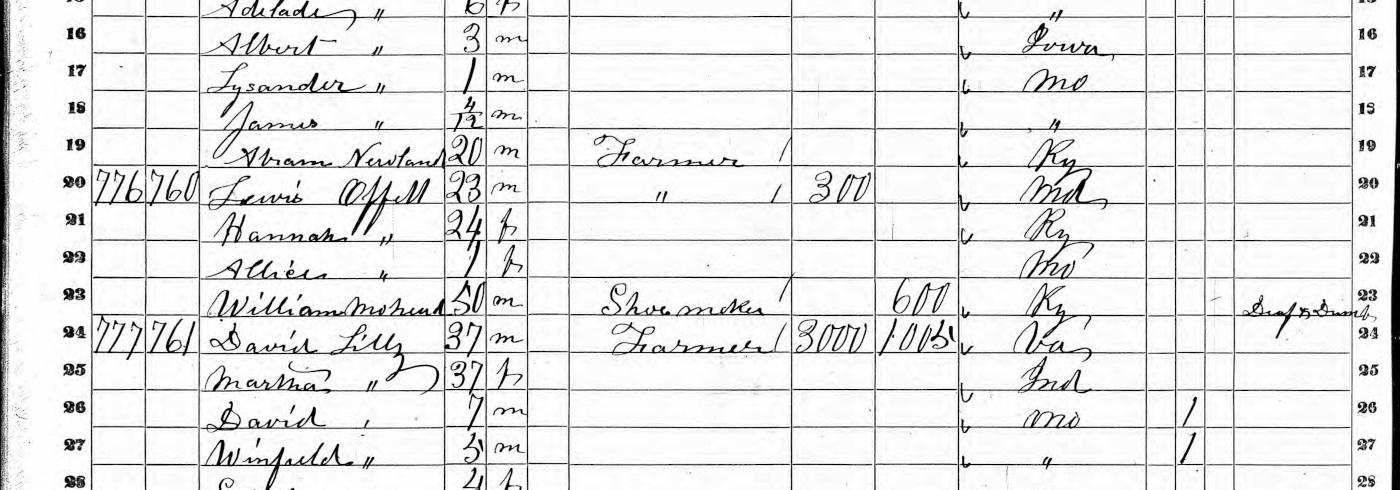 Adelade " 6 f "
16 Albert " 3 m Iowa 16
17 Lysander " 1 m Mo 17
18 James " 4/12 m " 18
19 Abram Newland 20 m Farmer 1 Ky 19
20 776 760 Lewis Offell 23 m " 1 300 Md 20
21 Hannah " 24 f Ky 21
22 " 1 f Mo 22
23 William 50 m Shoe maker 1 600 Ky Deaf & Dumb 23
24 777 761 David Lilly 37 m Farmer 1 3000 1005 Va 24
25 Martha " 37 f Ind 25
26 David " 7 m Mo 1 26
27 Winfield " 5 m " 1 27
28 4 f 28